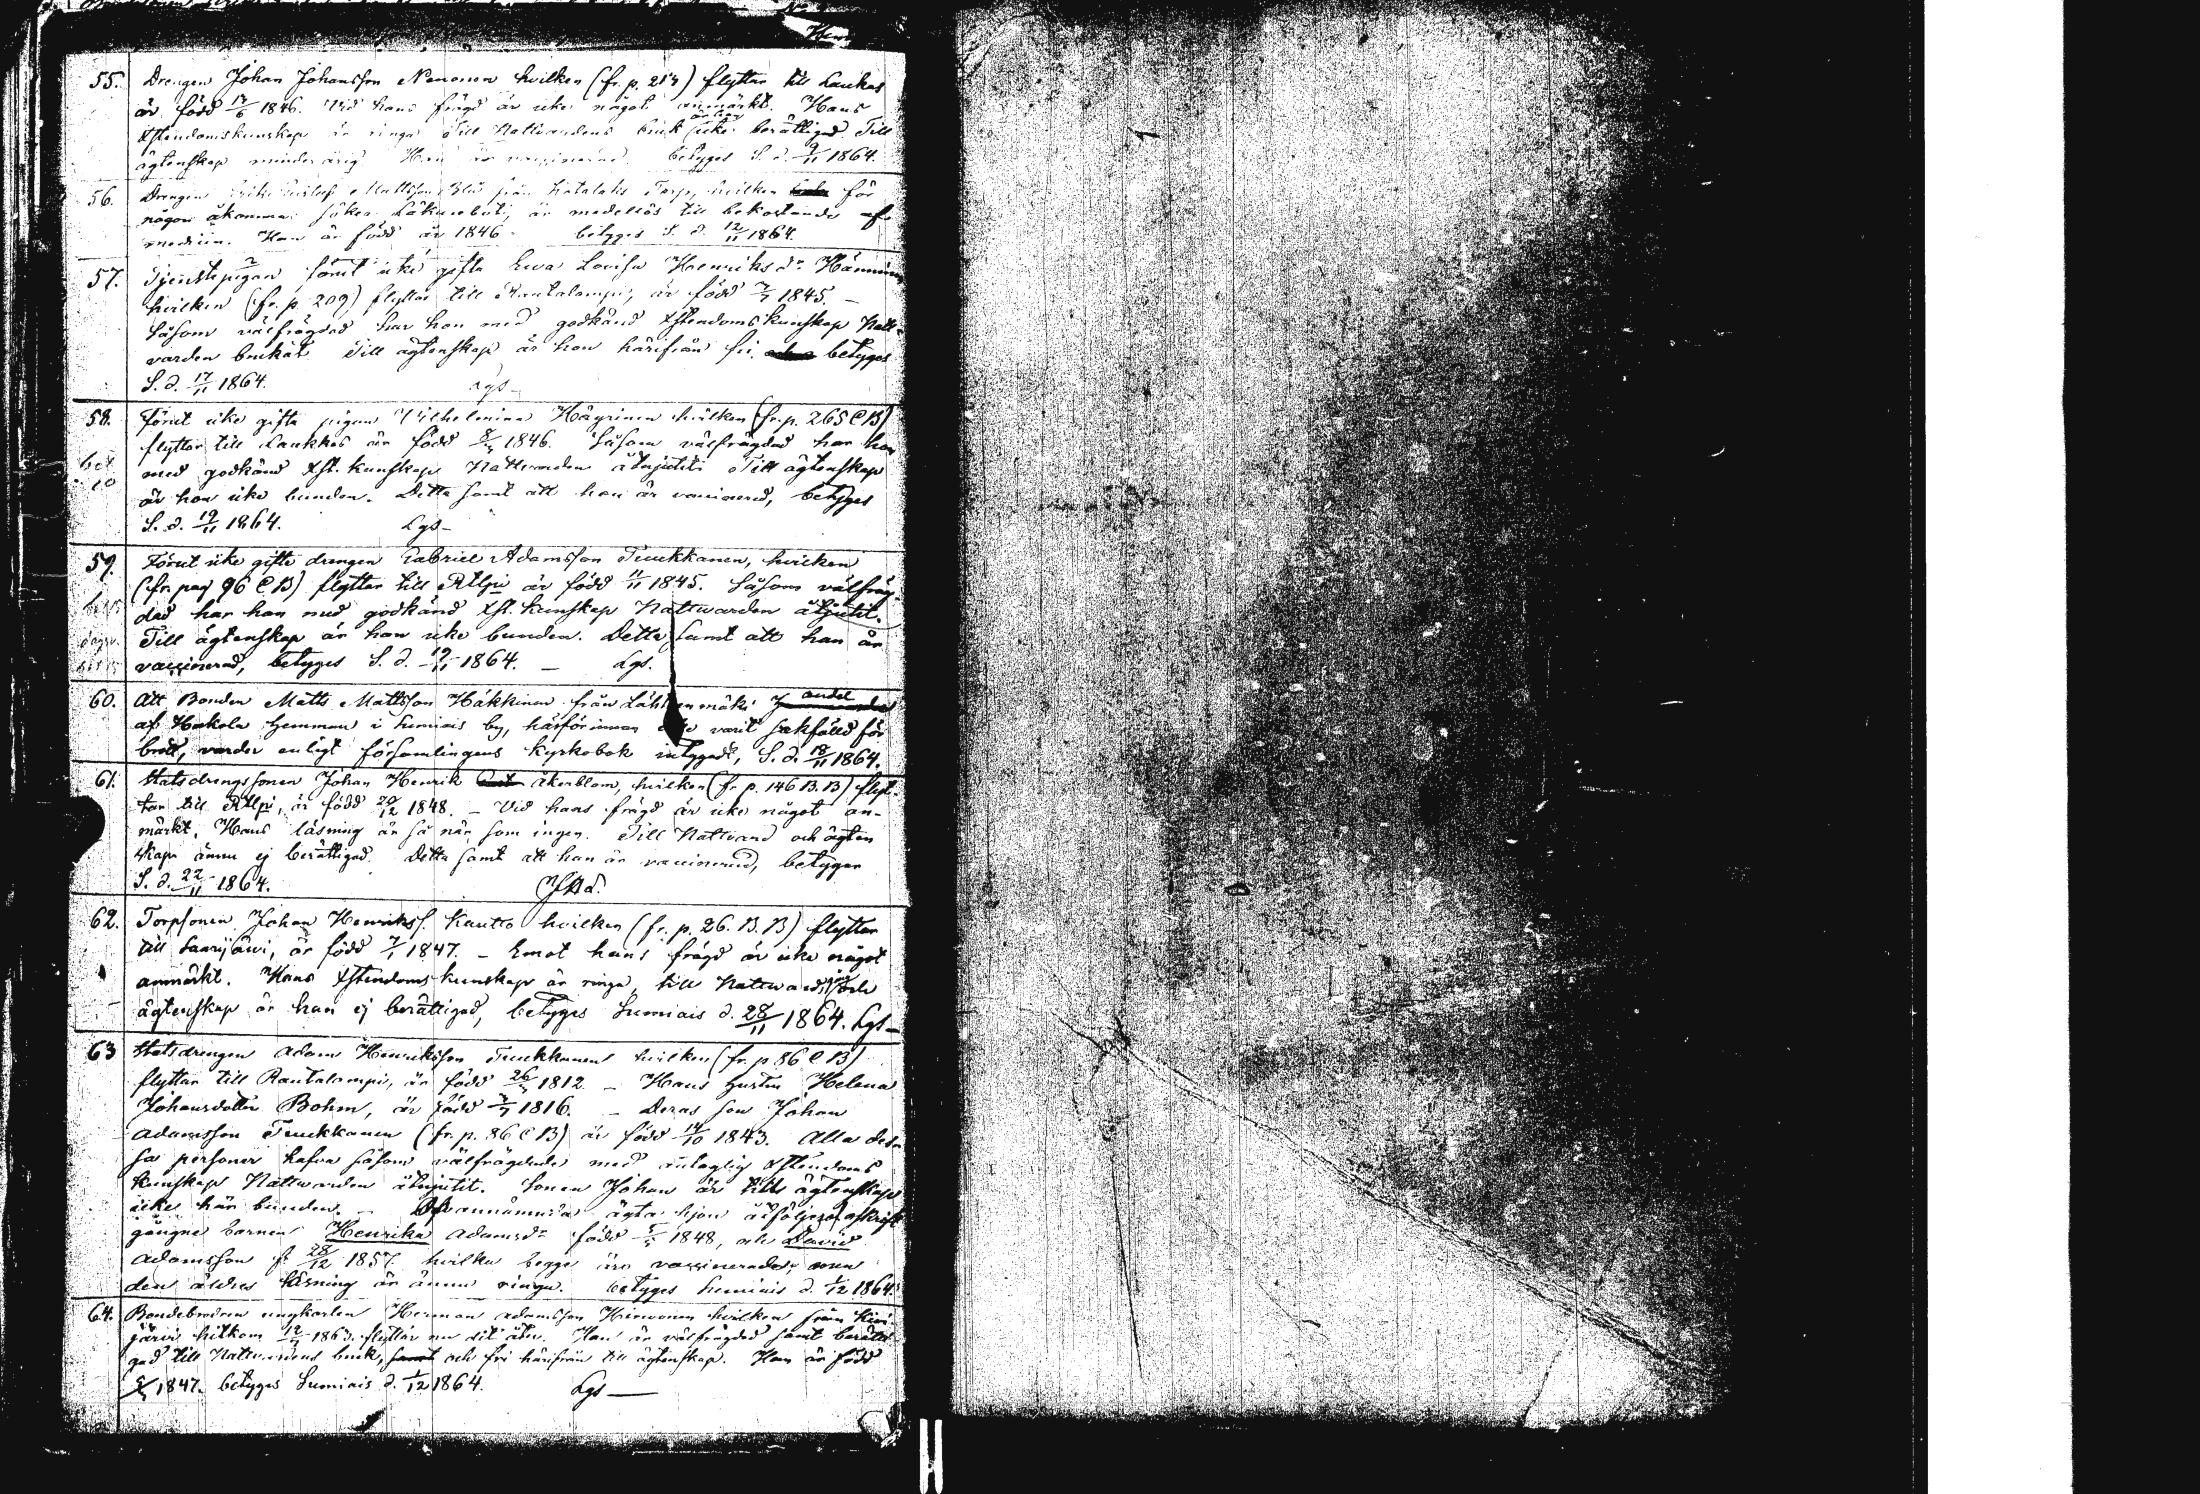 55. Drengen Johan Johansson Nenonen hvilken (fr. p. 214) flyttar till Laukas
är född 17/6 1846. Vid hans frägd är icke något anmärkt. Hans
Xstendomskunskap är ringa Till Nattvardens bruk icke berättigad Till
ägtenskap minderårig Han är vaccinerad. betyges S. d. 9/11 1864.
56. Drengen Mattsson från Torp, hvilken för
någon åkomma söker Läkarebot, är medellös till bekostande af
medicin. Han är född år 1846 betyges S. d. 12/11 1864.
57. Tjenstepigan förut icke gifta Ewa Lovisa Henriksdr Hänninen
hvilken (fr. p. 209) flyttar till Rautalampi, är född 7/7 1845. –
Såsom välfrägdad har hon med godkänd Xstendomskunskap Natt-
varden brukat Till ägtenskap är hon härifrån fri. betyges
S. d. 17/11 1864. Lgs
58. Förut icke gifta pigan Wilhelmina Häyrinen hvilken (fr. p. 265 C B)
flyttar till Laukkas är född 1846. Såsom välfrägdad har hon
med godkänd Xst. kunskap Nattvarden åtnjutit Till ägtenskap
är hon icke bunden. Detta samt att hon är vaccinerad, betyges
S. d. 19/11 1864. Lgs
59. Förut icke gifte drengen Gabriel Adamsson Tuukkanen, hvilken
(fr. pag 96 C B) flyttar till Rtlpi är född 11/11 1845. Såsom välfräg-
dad har han med godkänd Xst. kunskap Nattwarden åtnjutit.
Till ägtenskap är han icke bunden. Detta samt att han är
vaccinerad, betyges S. d. 19/11 1864. – Lgs.
60. Att Bonden Matts Mattsson Häkkinen från andel
af Hokola hemman i Sumiais by, härförinnan icke varit sakfälld för
brott, varder enligt församlingens kyrkobok intygadt, S. d. 18/11 1864.
61. Statsdrengssonen Johan Henrik Åkerblom, hvilken (fr p. 146 B.B) flyt-
tar till Rtlpi, är född 20/12 1848. – Vid hans frägd är icke något an-
märkt. Hans läsning är så när som ingen. Till Nattvard och ägten
skap ännu ej berättigad. Detta samt att han är vaccinerad, betyges
S. d. 22/11 1864.
62. Torpsonen Johan Henrikss. Kautto hvilken (fr. p. 26. B. B) flyttar
till Saarijärvi, är född 7/1 1847. – Emot hans frägd är icke något
anmärkt. Hans Xstendomskunskap är ringa, till Nattward och
ägtenskap är han ej berättigad, betyges Sumiais d. 28/11 1864. Lgs
63 Statsdrengen Adam Henriksson Tuukkanen hvilken (fr. p 86 C B)
flyttar till Rautalampi, är född 1812 – Hans hustru Helena
Johansdotter Bohm, är född 1816. – Deras son Johan
Adamsson Tuukkanen (fr. p. 86 C B) är född 14/10 1843. Alla des-
sa personer hafva såsom välfrägdade med antaglig Xstendoms
kunskap Nattwarden åtnjutit. Sonen Johan är till ägtenskap
icke här bunden. – Ofvannämnda ägta hjon åtföljas af
gångna barnen Henrika Adamsdr född 1848, och David
Adamsson f. 28/12 1857. hvilka begge äro vaccinerade, men
den äldres läsning är ännu ringa. betyges Sumiais d. 1/12 1864.
64. Bondebrodren ungkarlen Herman Adamsson Hirvonen hvilken från Kivi
järvi hitkom 1863. flyttar nu dit åter. Han är välfrägdad samt berätti-
gad till Nattvardens bruk, och fri härifrån till ägtenskap. Han är född
1847. betyges Sumiais d. 1/12 1864. Lgs